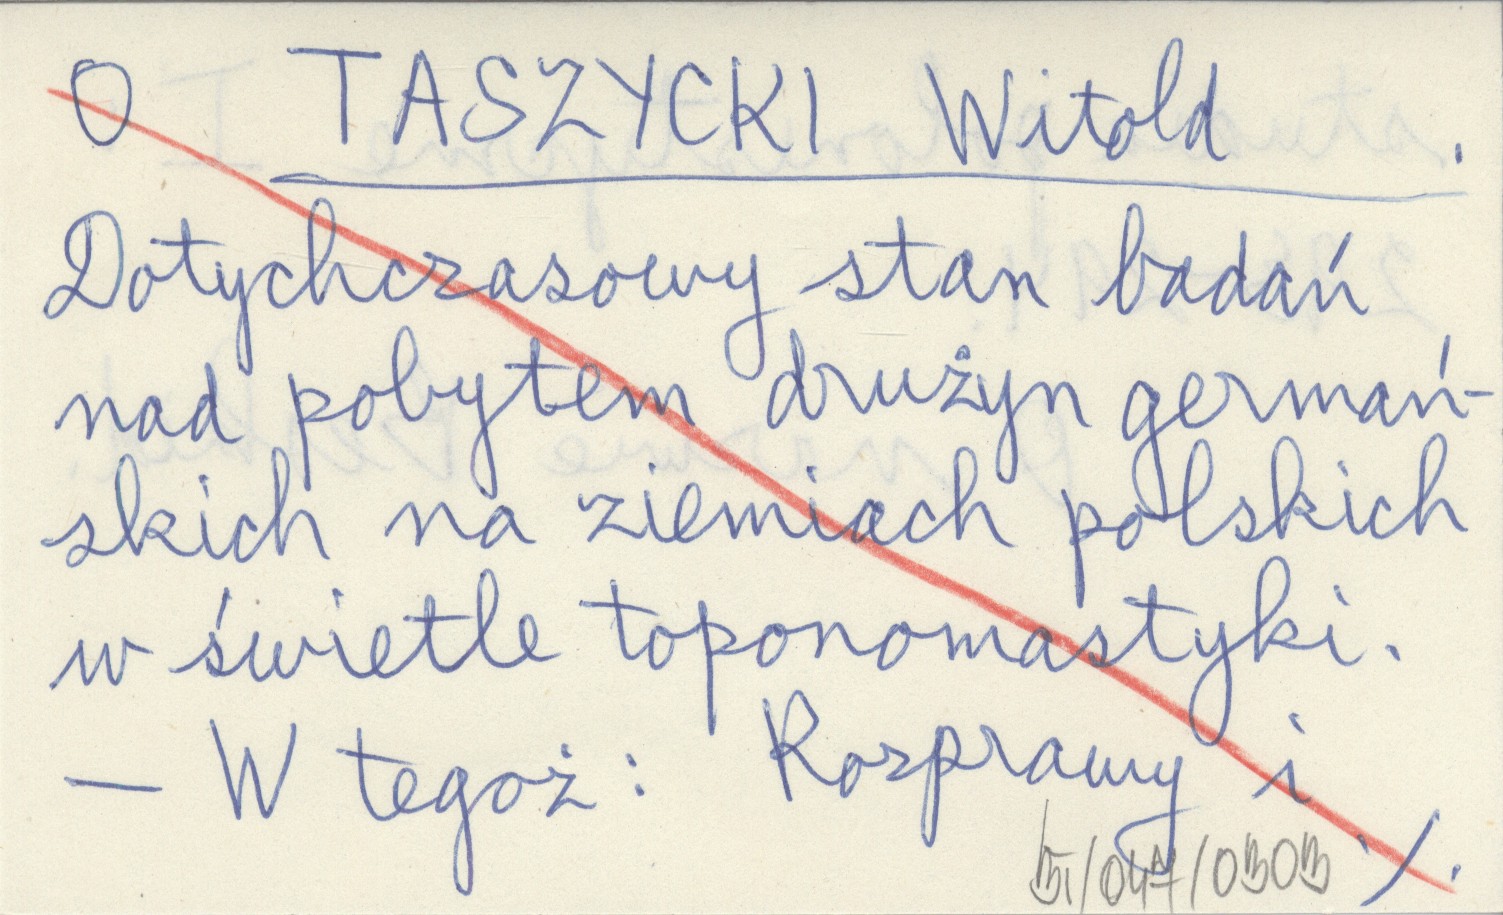 O TASZYCKI Witold .
Dotychczasowy stan badań
nad pobytem drużyn germań-
skich na ziemiach polskich
w świetle toponomastyki.
— W tegoż: Rozprawy i
./.